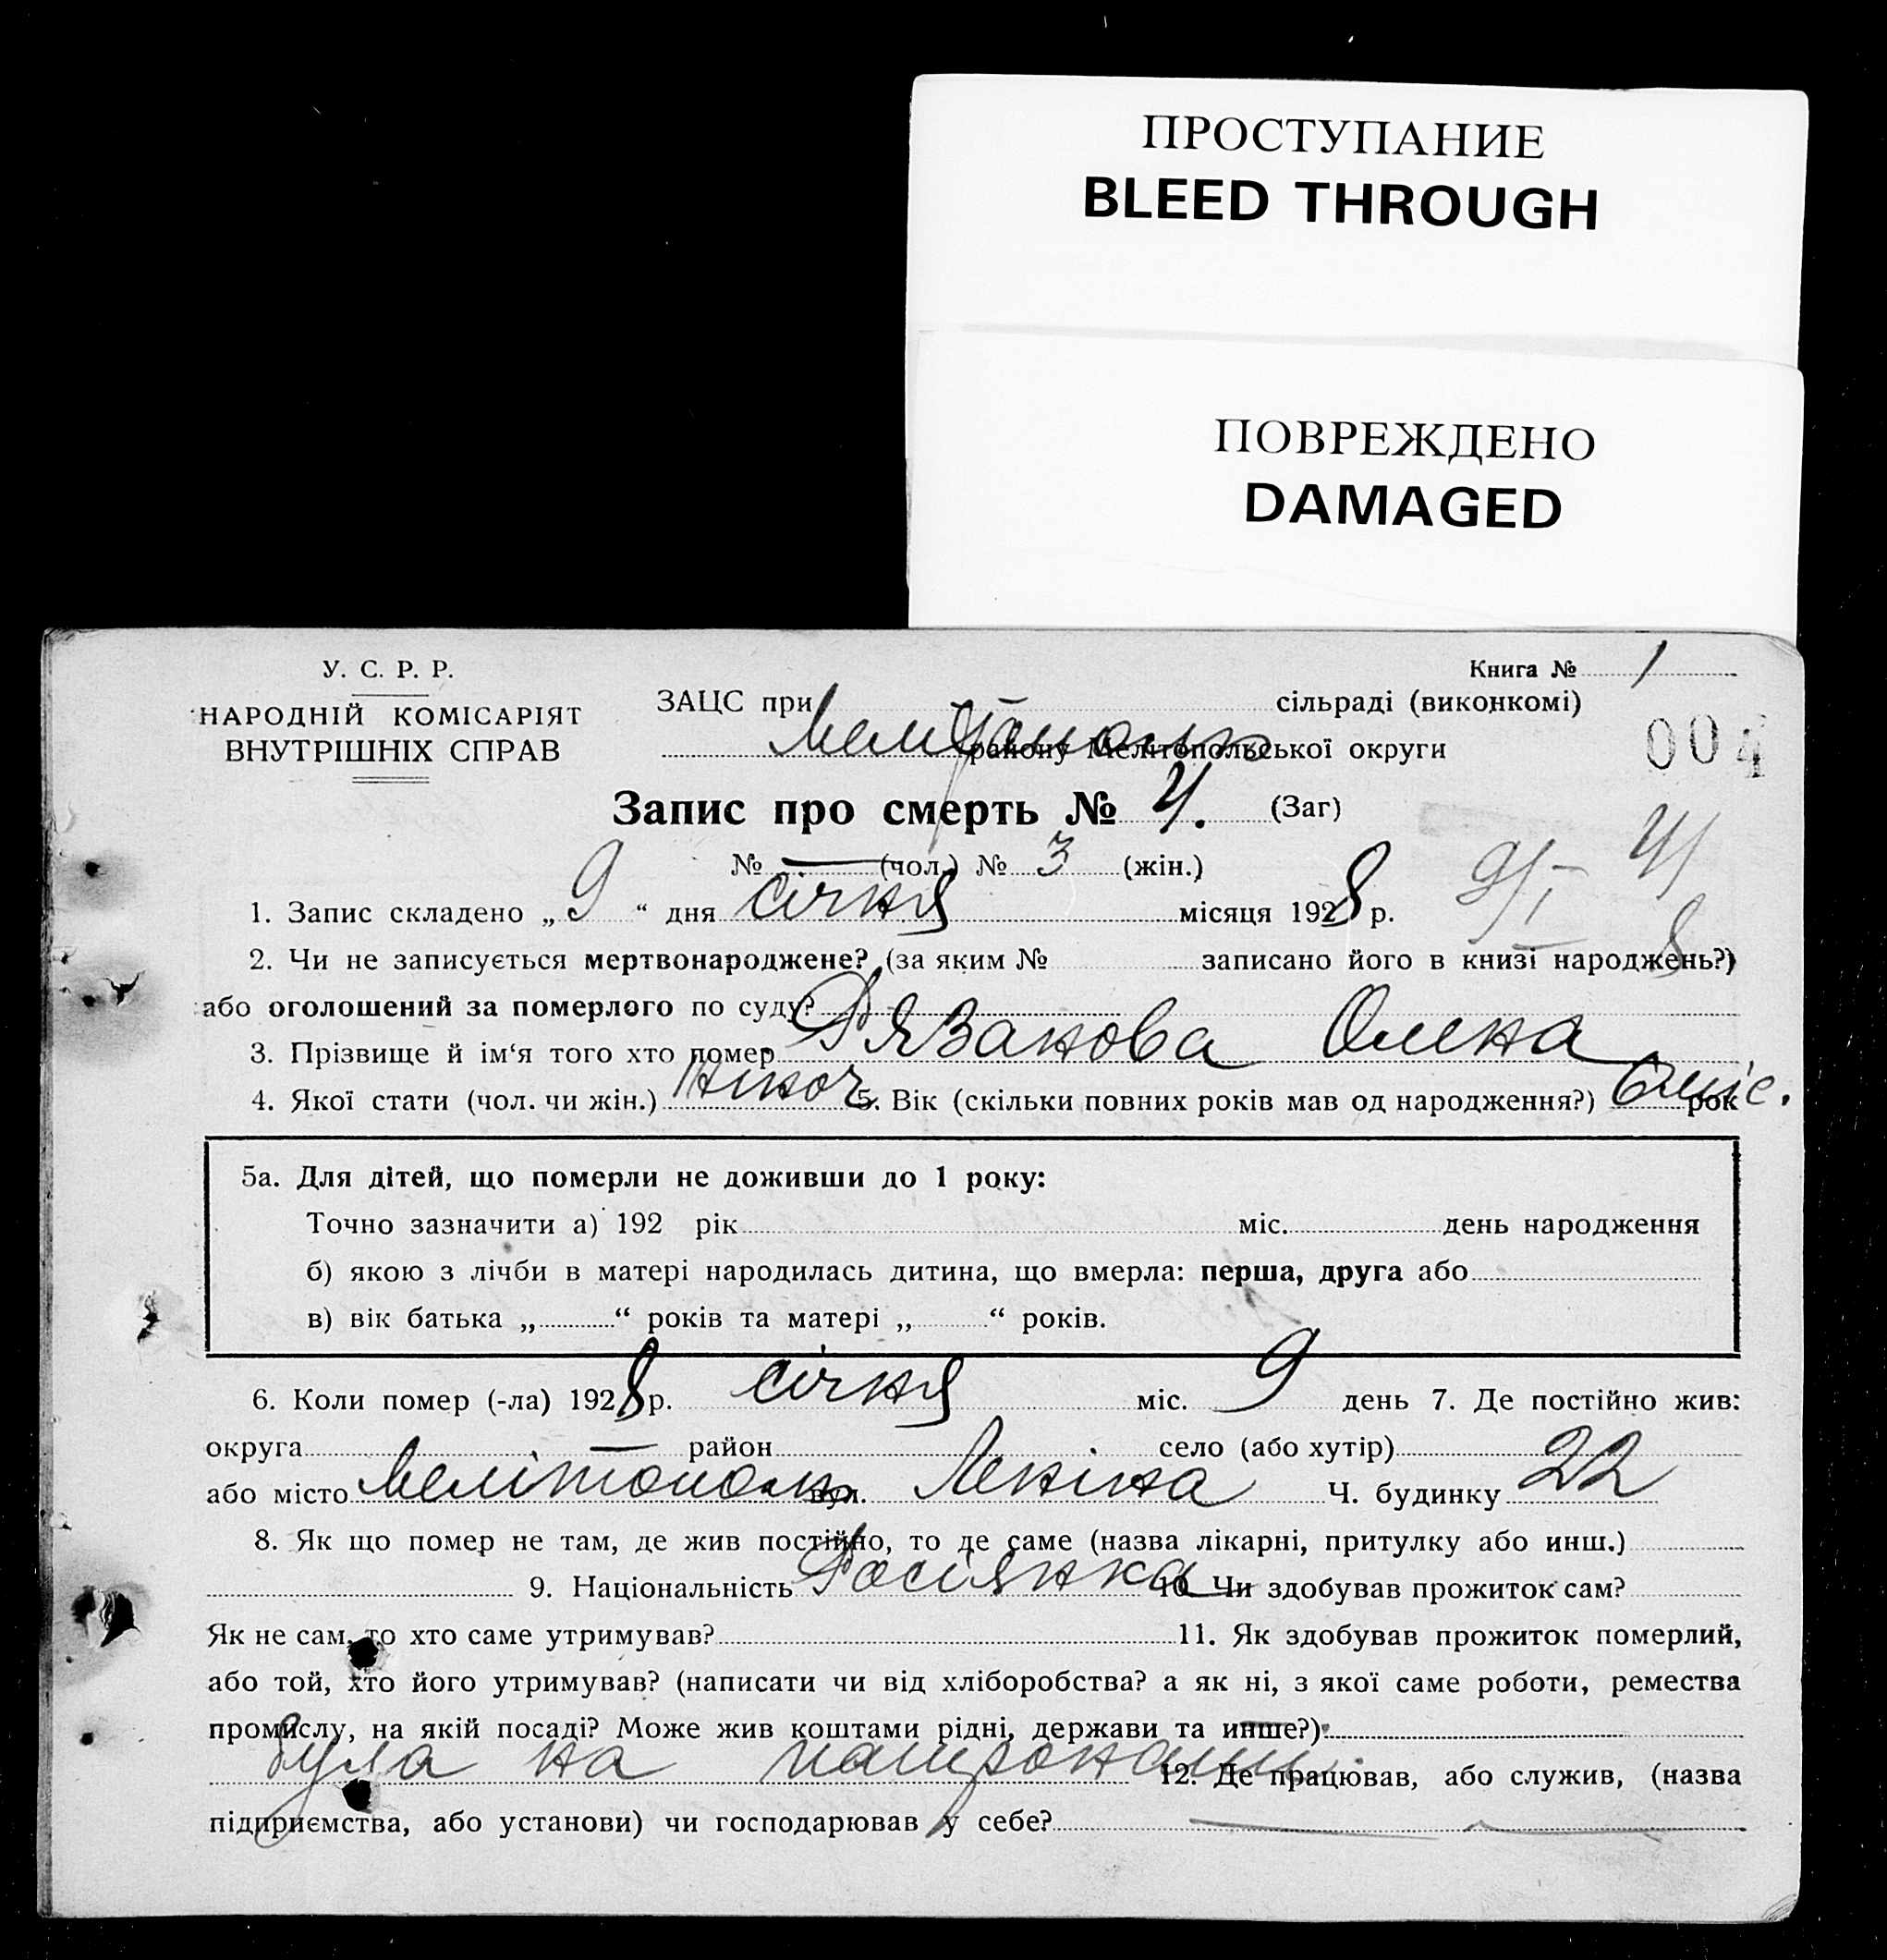 ПРОСТУПАНИЕ
BLEED THROUGH
ПОВРЕЖДЕНО
DAMAGED
У. С. Р. Р.
НАРОДНІЙ КОМІСАРІЯТ
ВНУТРІШНІХ СПРАВ
Книга № 1
ЗАЦС при сільраді (виконкомі)
району Мелітопольської округи
004
Запис про смерть № 4. (Заг)
№ — (чол.) № 3 (жін.)
9/I 4/
8
1. Запис складено „ 9 “ дня січня місяця 1928 р.
2. Чи не записується мертвонароджене? (за яким № записано його в книзі народжень?)
або оголошений за померлого по суду?
3. Прізвище й ім‘я того хто помер Рязанова Олена
4. Якої стати (чол. чи жін.) жіноч. 5. Вік (скільки повних років мав од народження?) 6 міс. рок
5а. Для дітей, що померли не доживши до 1 року:
Точно зазначити а) 192 рік міс. день народження
б) якою з лічби в матері народилась дитина, що вмерла: перша, друга або
в) вік батька „ “ років та матері „ “ років.
6. Коли помер (-ла) 1928 р. січня міс. 9 день 7. Де постійно жив:
округа — район село (або хутір)
або місто Мелітополь вул. Леніна Ч. будинку 22
8. Як що помер не там, де жив постійно, то де саме (назва лікарні, притулку або инш.)
9. Національність Росіянка 10. Чи здобував прожиток сам?
Як не сам, то хто саме утримував? 11. Як здобував прожиток померлий,
або той, хто його утримував? (написати чи від хліборобства? а як ні, з якої саме роботи, ремества
промислу, на якій посаді? Може жив коштами рідні, держави та инше?)
була на патронаті. 12. Де працював, або служив, (назва
підприємства, або установи) чи господарював у себе? —